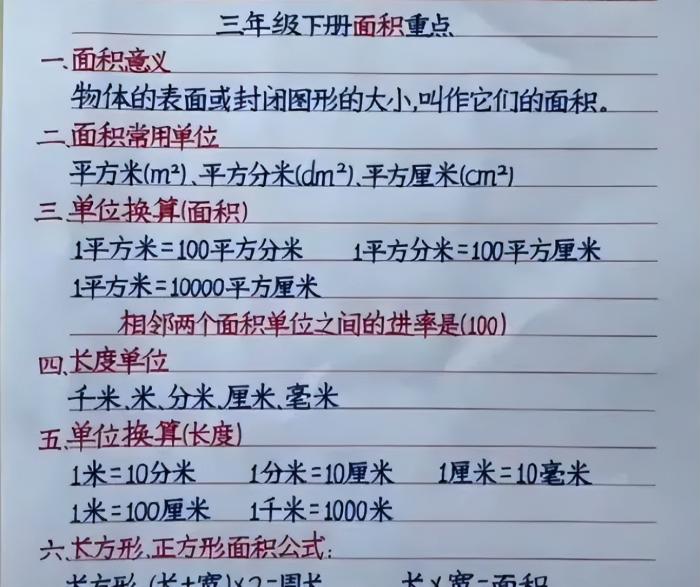 三年级下册面积重点
一、面积意义
物体的表面或封闭图形的大小,叫作它们的面积。
二、面积常用单位
平方米(m²)、平方分米(dm²)、平方厘米(cm²)
三、单位换算(面积)
1平方米=100平方分米 1平方分米=100平方厘米
1平方米=10000平方厘米
相邻两个面积单位之间的进率是(100)
四、长度单位
千米、米、分米、厘米、毫米
五、单位换算(长度)
1米=10分米 1分米=10厘米 1厘米=10毫米
1米=100厘米 1千米=1000米
六、长方形、正方形面积公式:
长方形 (长+宽)×2=周长 长×宽=面积